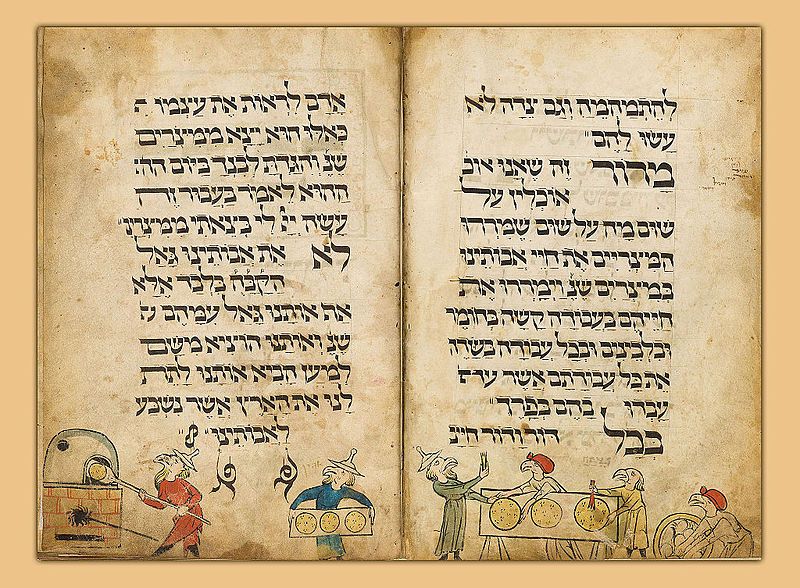 להתמהמה וגם צדה לא
עשו להם
מרור זה שאנו אוכ
אוכלין על
שום מה על שום שמררו
המצריים את חיי אבותינו
במצרים שנ' וימררו את
חייהם בעבודה קשה בחומ'
ובלבנים ובכל עבודה בשדה
את כל עבודתם אשר
עבדו בהם בפרך
בכל דור ודור חייב
אדם לראות את עצמו
כאלו הוא יצא ממצרים
שנ' והגדת לבנך ביום הה
ההוא לאמר בעבור זה
עשה יי לי בצאתי ממצרים
לא את אבותינו גאל
הקבה בלבד אלא
את אותנו גאל עמהם
שנ' ואותנו הוציא משם
למען הביא אותנו לתת
לנו את הארץ אשר נשבע
לאבותינו